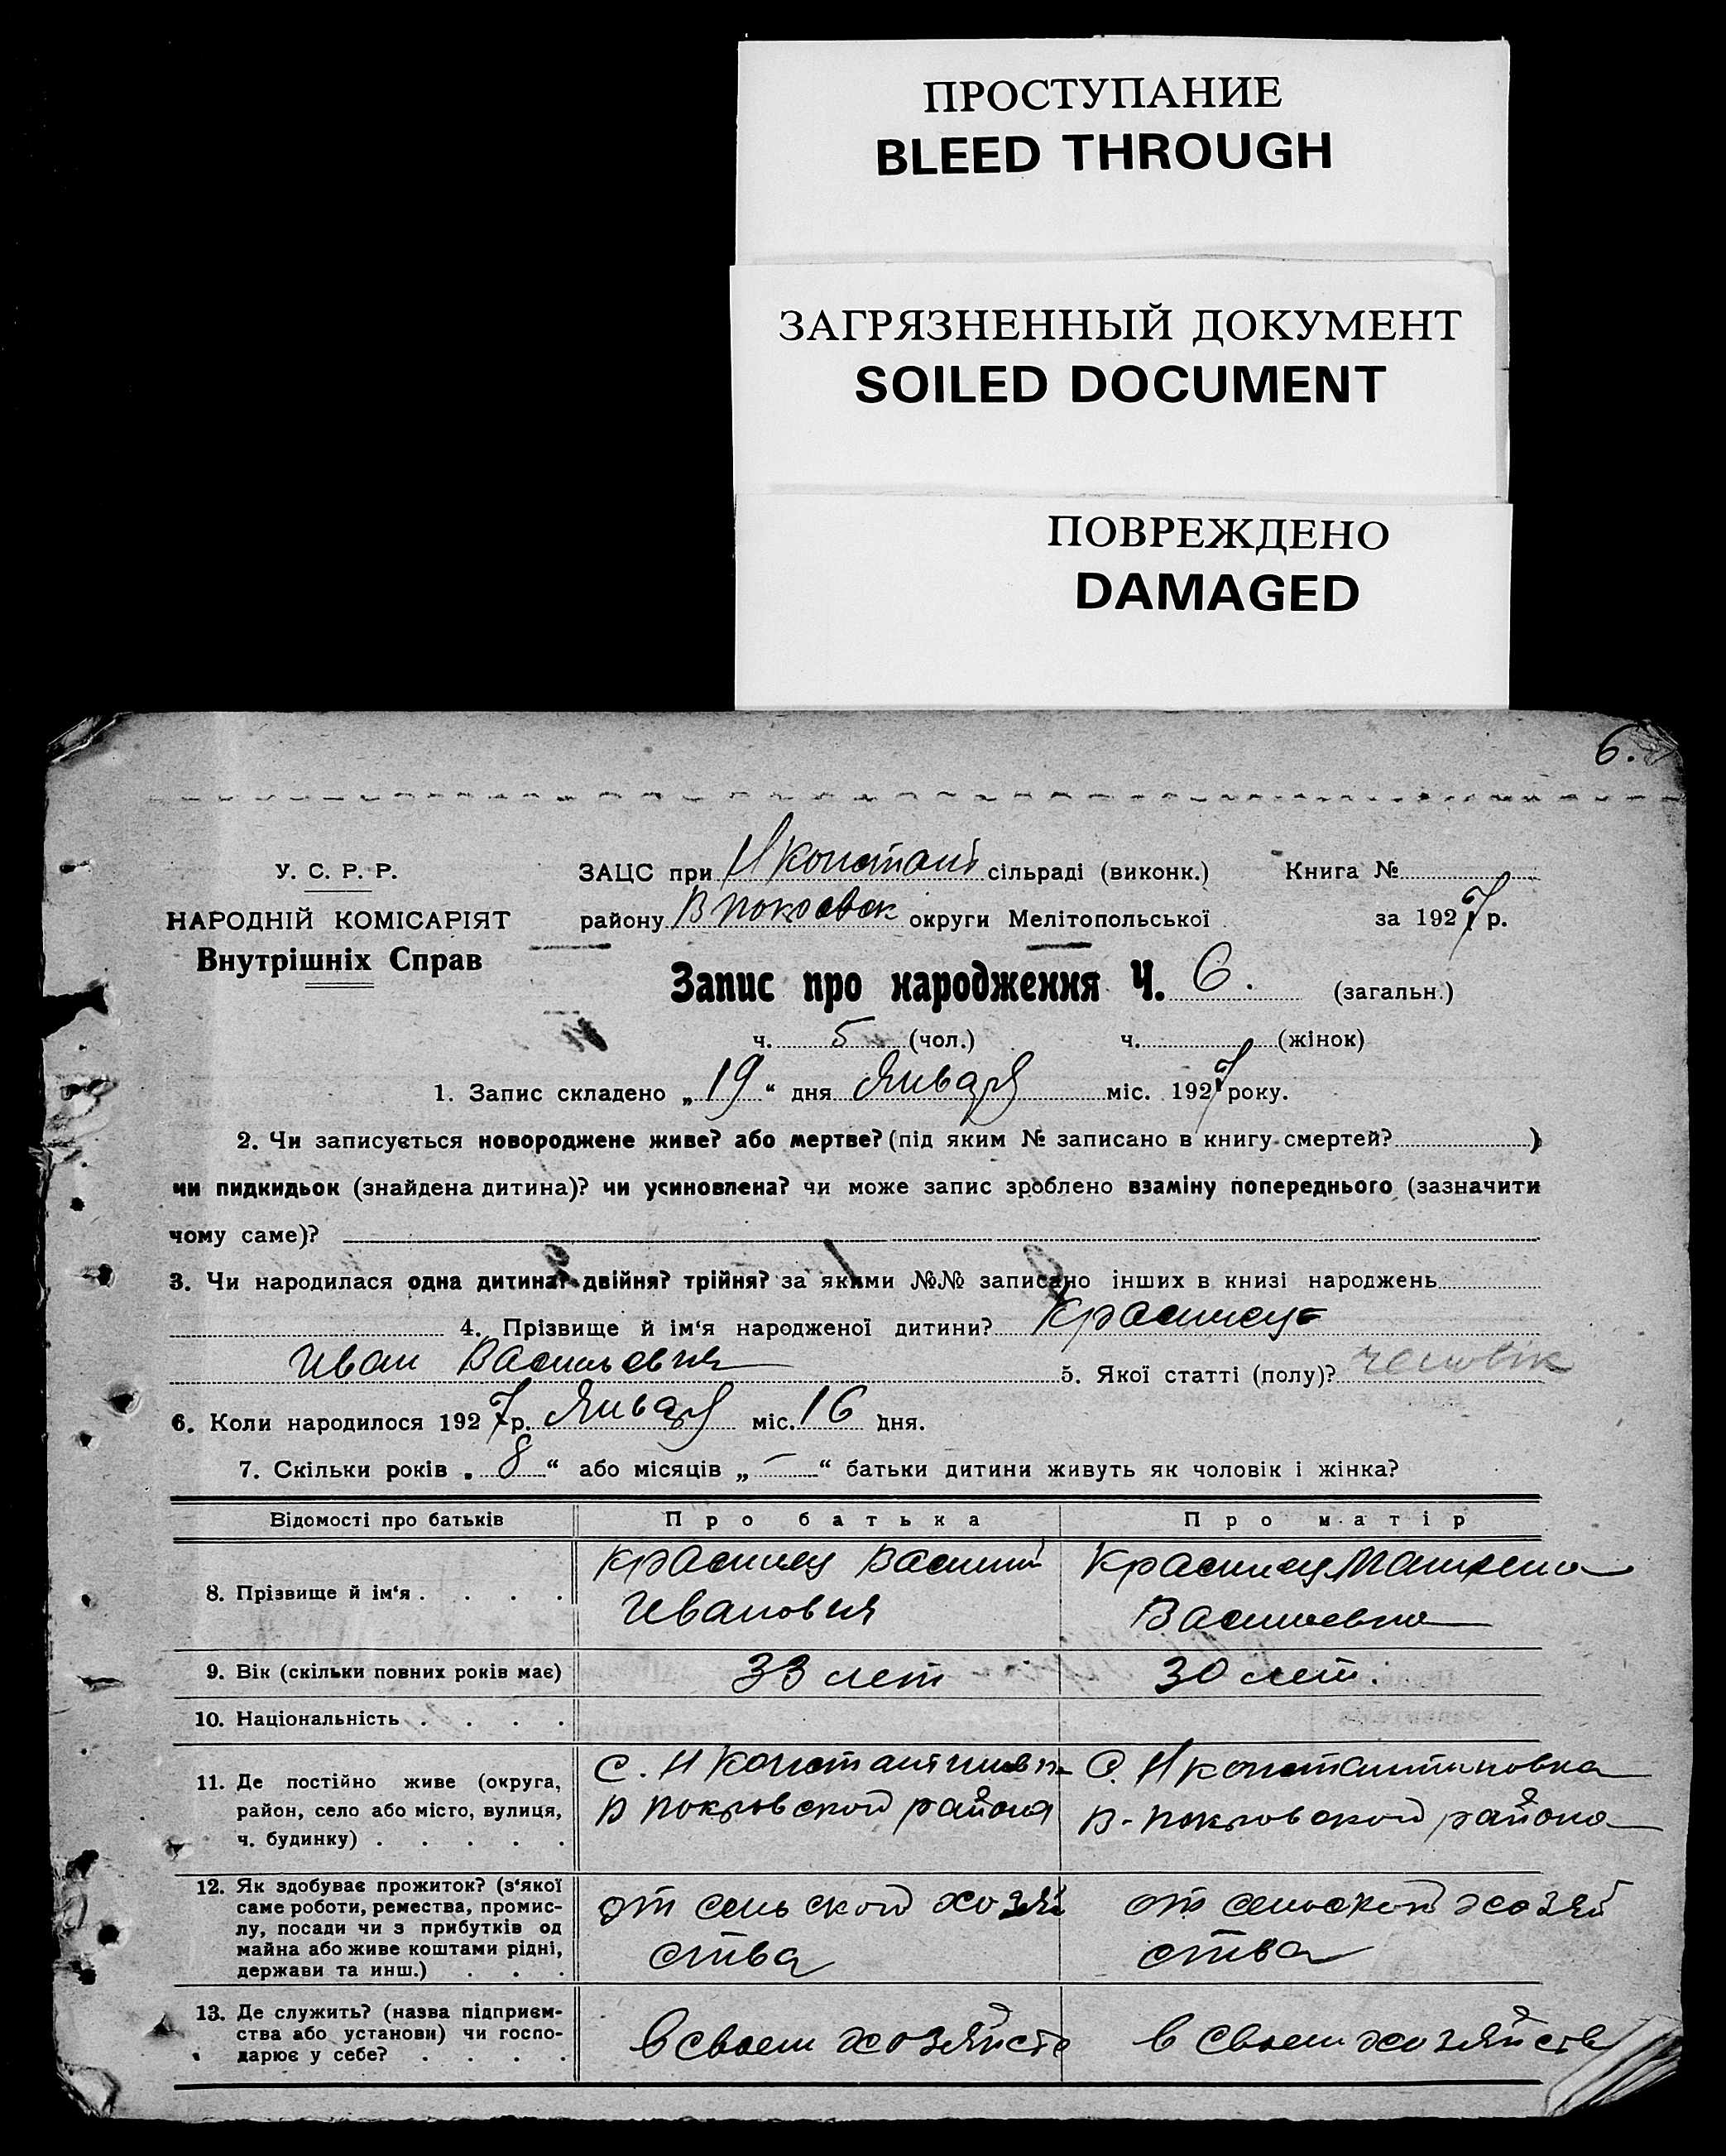 ПРОСТУПАНИЕ
BLEED THROUGH
ЗАГРЯЗНЕННЫЙ ДОКУМЕНТ
SOILED DOCUMENT
ПОВРЕЖДЕНО
DAMAGED
6.
У. С. Р. Р.
НАРОДНІЙ КОМІСАРІЯТ
Внутрішніх Справ
ЗАЦС при Н Констант сільраді (виконк.) Книга №
району В покровск округи Мелітопольської за 1927 р.
Запис про народження Ч. 6. (загальн.)
ч. 5 (чол.) ч. (жінок)
1. Запис складено „19“ дня Января міс. 1927 року.
2. Чи записується новороджене живе? або мертве? (під яким № записано в книгу смертей? )
чи пидкидьок (знайдена дитина)? чи усиновлена? чи може запис зроблено взаміну попереднього (зазначити
чому саме)?
3. Чи народилася одна дитина? двійня? трійня? за якими №№ записано інших в книзі народжень
4. Прізвище й ім‘я народженої дитини? Красниец
Иван Васильевич 5. Якої статті (полу)? чоловік
6. Коли народилося 1927 р. Января міс. 16 дня.
7. Скільки років „8“ або місяців „—“ батьки дитини живуть як чоловік і жінка?
Відомості про батьків Про батька Про матір
8. Прізвище й ім‘я . . . .
Василий
Иванович
Васильевна
9. Вік (скільки повних років має) 33 лет 30 лет.
10. Національність . . . .
11. Де постійно живе (округа,
район, село або місто, вулиця,
ч. будинку) . . . . .
с. Н Константиновк
В покровского района
С. Н константиновка
В-покровского района
12. Як здобуває прожиток? (з‘якої
саме роботи, ремества, промис-
лу, посади чи з прибутків од
майна або живе коштами рідні,
держави та инш.) . . .
от сельского хозяй
ства
от сельского хозяй
ства
13. Де служить? (назва підприєм-
ства або установи) чи госпо-
дарює у себе? . . . .
в своем хозяйстве
в своем хозяйстве